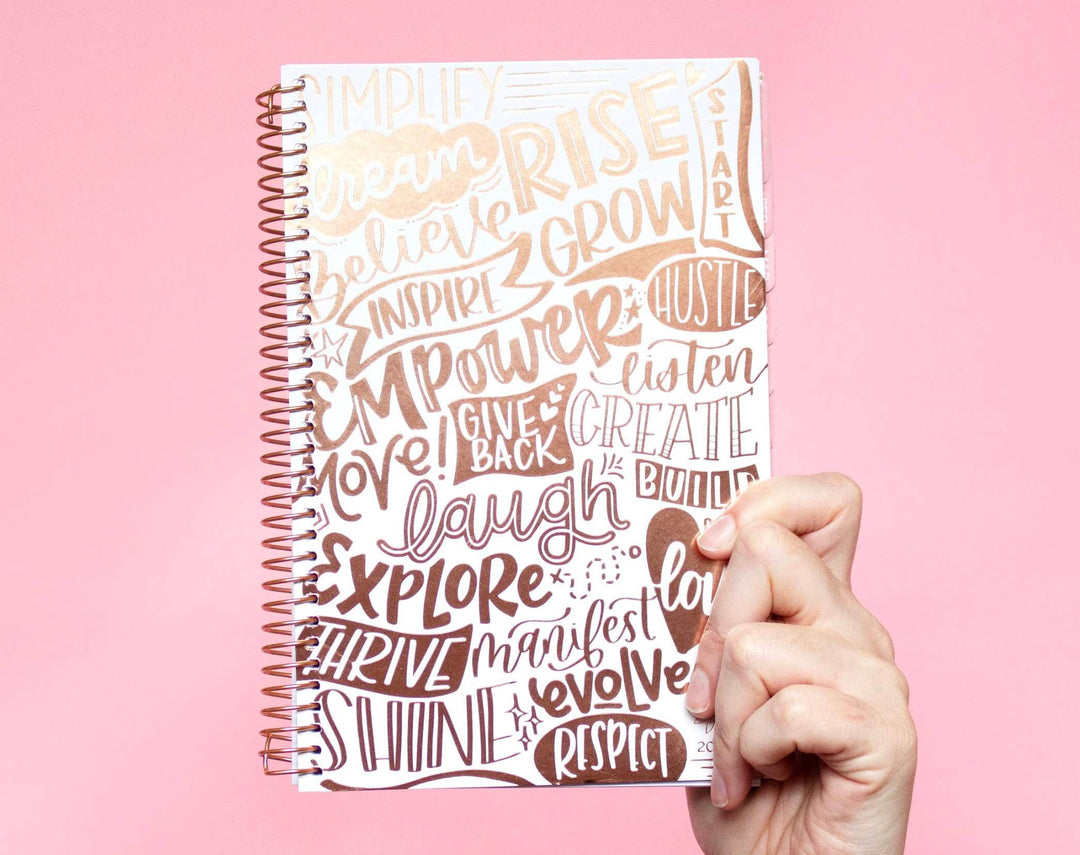 SIMPLIFY
dream
RISE
START
Believe
GROW
INSPIRE
HUSTLE
EMPOWER
listen
GIVE BACK
CREATE
MOVE!
BUILD
laugh
EXPLORE
THRIVE
manifest
evolve
SHINE
RESPECT